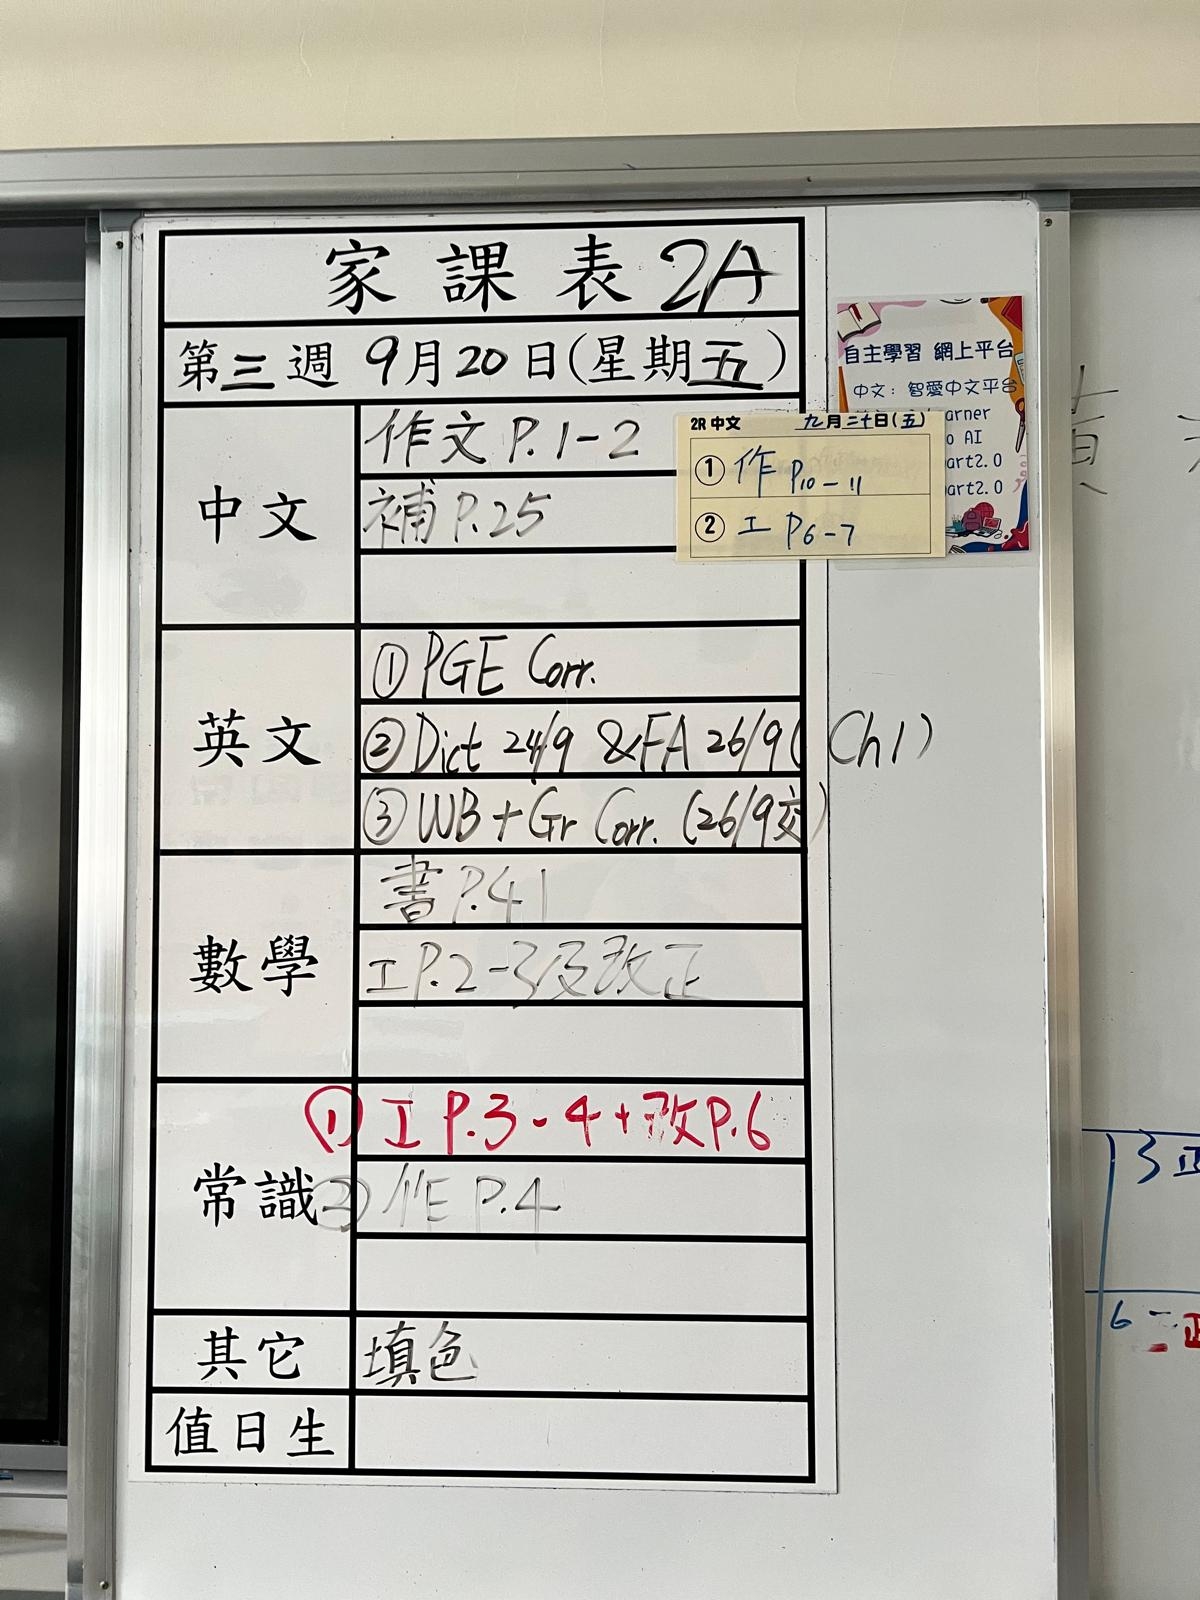 家課表 2A
第三週 9月20日(星期五)
中文
作文 P.1-2
補 P.25
英文
① PGE Corr.
② Dict 24/9 & FA 26/9 (Ch1)
③ WB + Gr Corr. (26/9交)
數學
書 P.41
工 P.2-3及改正
常識
① 工 P.3-4+改P.6
② 作 P.4
其它
填色
值日生
2R 中文 九月二十日(五)
① 作 P10-11
② 工 P6-7
自主學習 網上平台
中文：智愛中文平台
arner
o AI
art2.0
art2.0
3 正
6
正